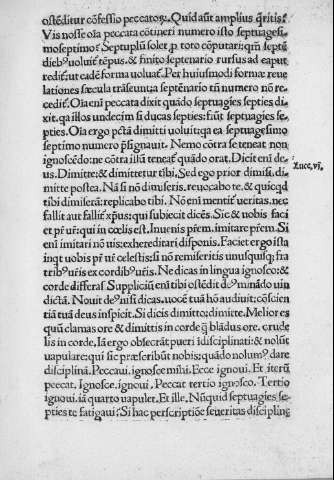 ostēditur cōfessio peccatoꝝ. Quid aūt amplius q̄ritis?
Vis nosse oīa peccata cōtineri numero isto septuagesi-
moseptimo? Septuplū solet ꝓ toto cōputari: qm̄ septē
dieb⁹ uoluit̄ tēpus: & finito septenario rursus ad caput
redit: ut eadē forma uoluat̄. Per huiusmodi formæ reue
lationes sæcula trāseunt: a septēnario tn̄ numero nō re-
cedit̄. Oīa eni peccata dixit quādo septuagies septies di-
xit. qa illos undecim si ducas septies: fiūt septuagies se-
pties. Oīa ergo pctā dimitti uoluit: q ea septuagesimo
septimo numero p̄signauit. Nemo cōtra se teneat non
ignoscēdo: ne cōtra illū teneat̄ quādo orat. Dicit eni de-
us. Dimitte: & dimittetur tibi. Sed ego prior dimisi, di-
mitte postea. Nā si nō dimiseris, reuocabo te, & quicqd
tibi dimiserā: replicabo tibi. Nō eni mentit̄ ueritas. nec
fallit aut fallit̄ xp̄us: qui subiecit dicēs. Sic & uobis faci
et pr̄ ur̄: qui in cœlis est. Inuenis prēm. imitare prēm. Si
eni imitari nō uis: exhereditari disponis. Faciet ergo ista
inqt uobis pr̄ ur̄ celestis: si nō remiseritis unusquisq; fra
trib⁹ ur̄is ex cordib⁹ ur̄is. Ne dicas in lingua ignosco: &
corde differas. Suppliciū eni tibi ostēdit de⁹ mināda uin
dictā. Nouit de⁹ nisi dicas. uocē tuā hō audiuit: cōsciēn
tiā tuā deus inspicit. Si dicis dimitto: dimitte. Melior es
quū clamas ore & dimittis in corde q̄ blādus ore. crude
lis in corde. Iā ergo obsecrāt pueri īdisciplinati: & nolūt
uapulare: qui sic præscribūt nobis: quādo nolum⁹ dare
disciplinā. Peccaui. ignosce mihi. Ecce ignoui. Et iterū
peccat. Ignosce. ignoui. Peccat tertio ignosco. Tertio
ignoui. iā quarto uapulet. Et ille. Nūquid septuagies se-
pties te fatigaui? Si hac perscriptiōe seueritas disciplinę
Luce. vi.